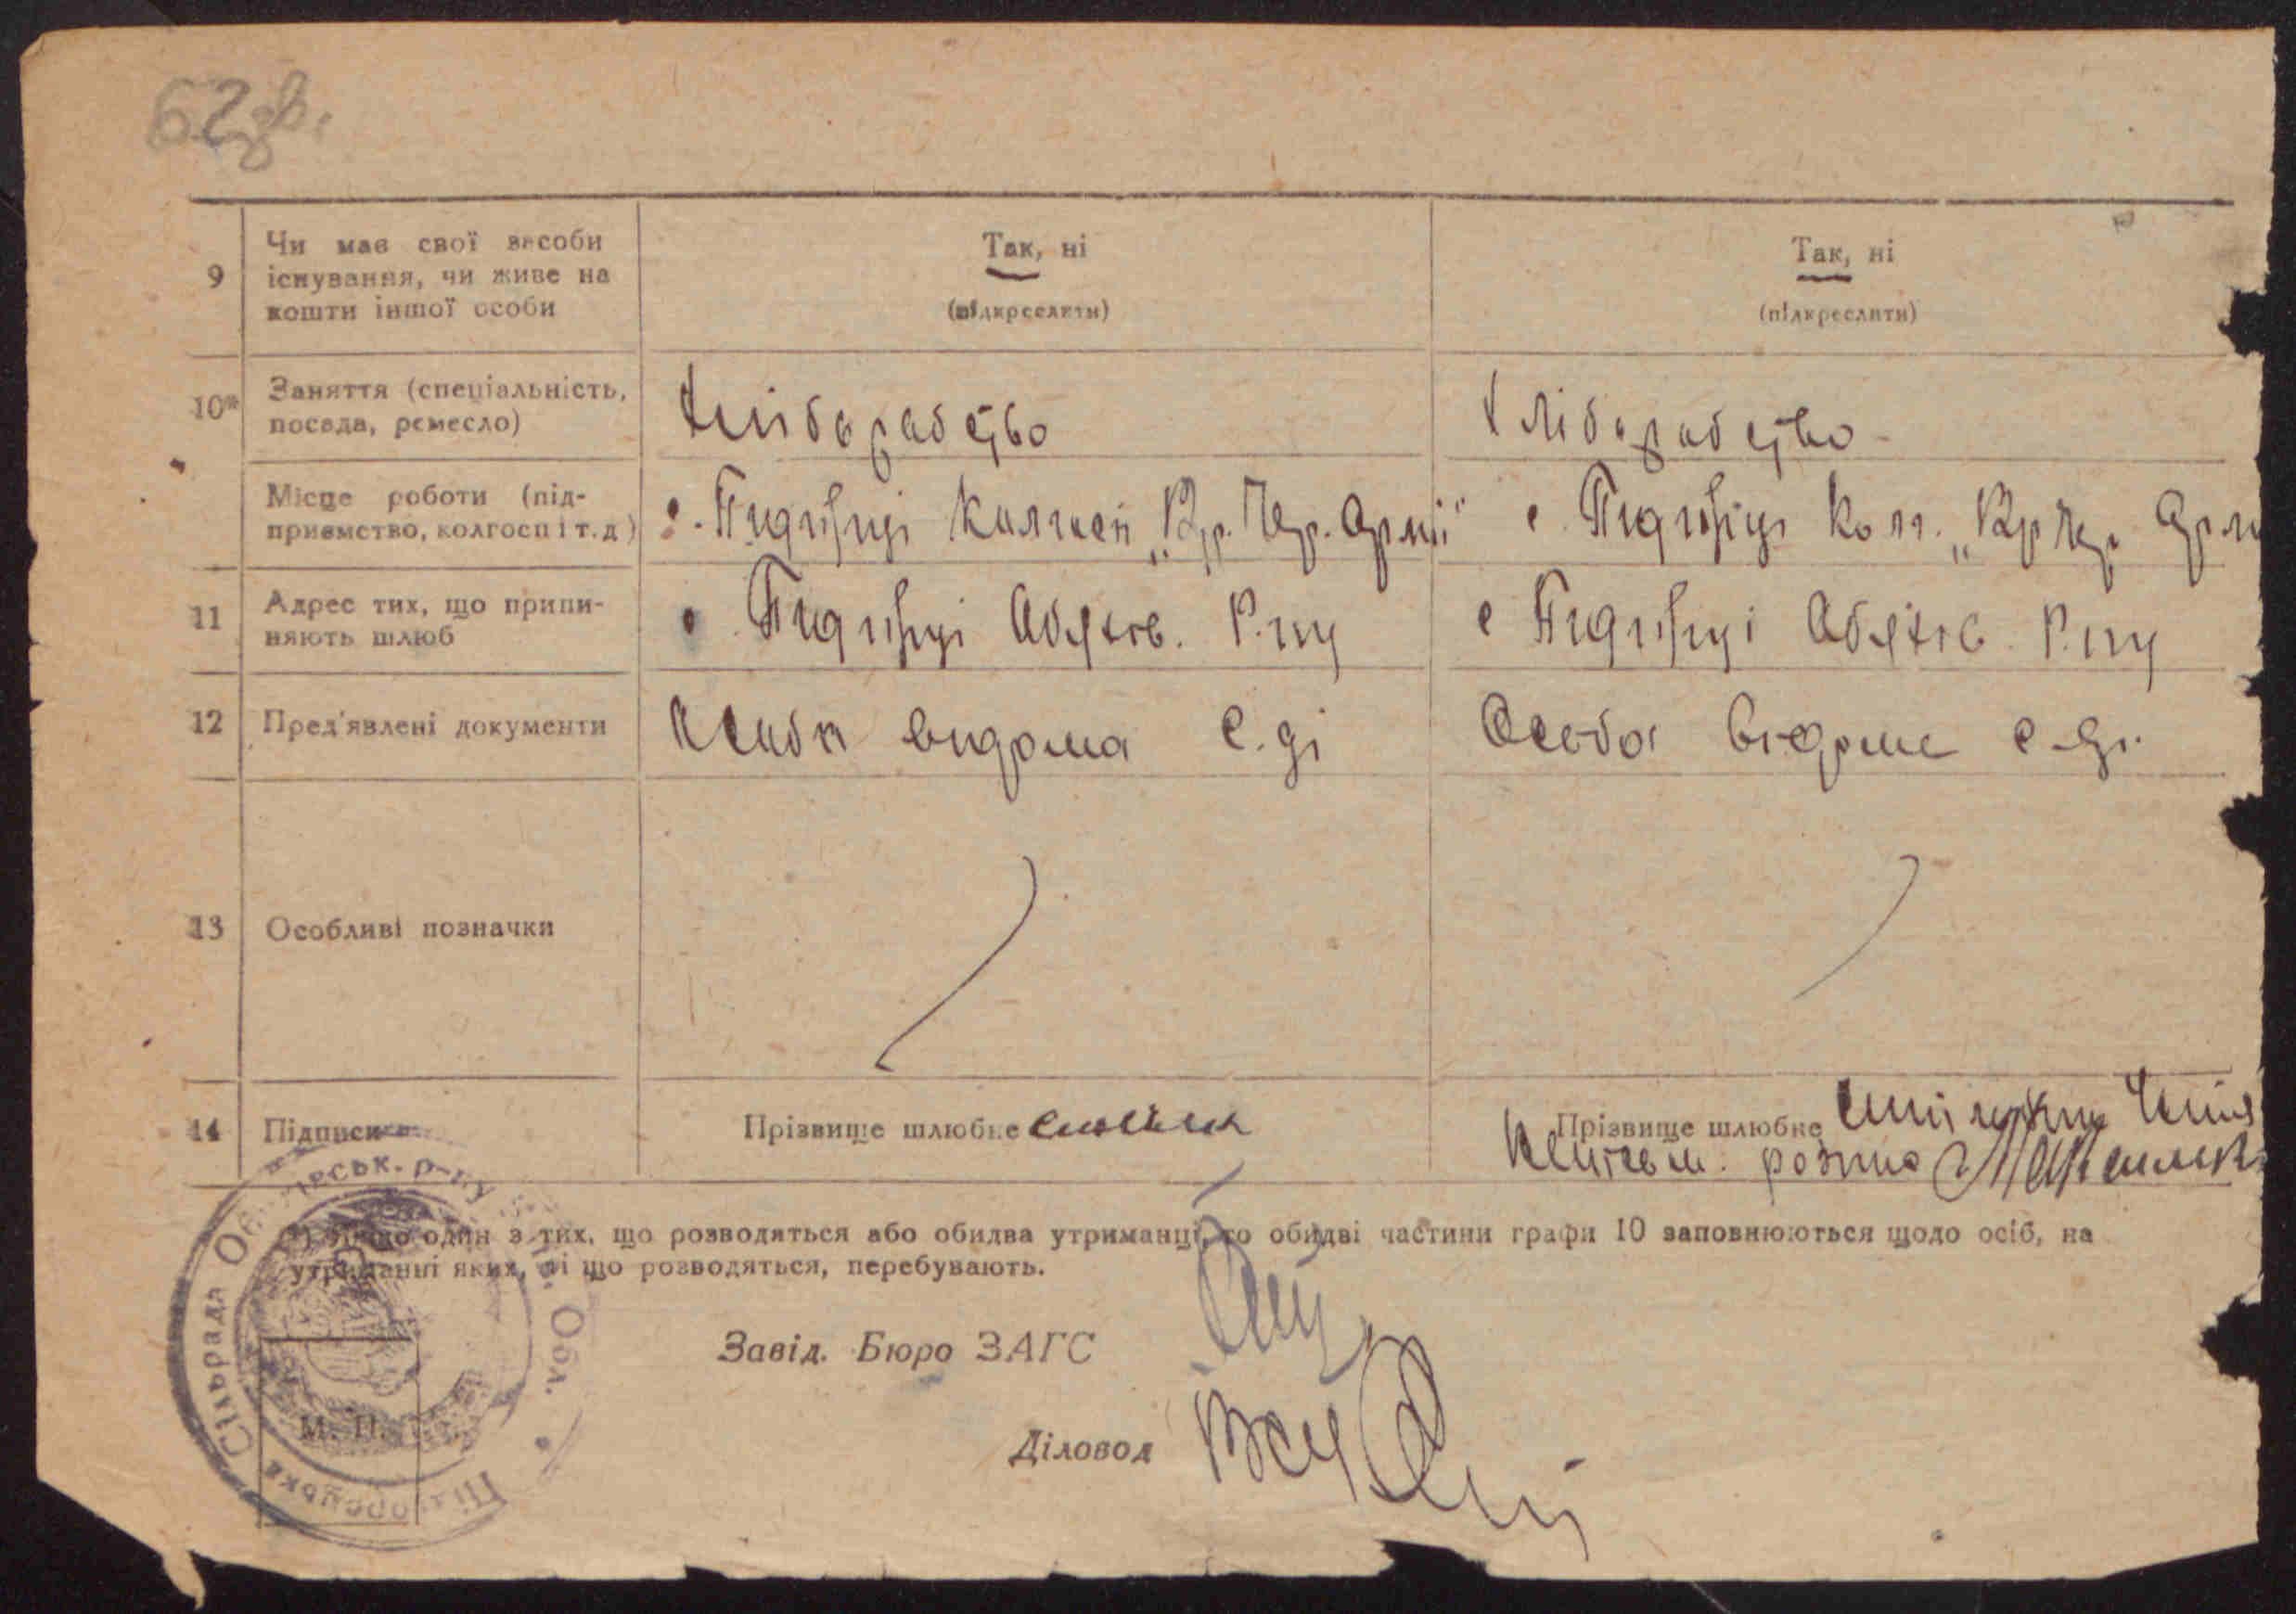 62 зв.
9 Чи має свої засоби Так, ні Так, ні
існування, чи живе на
кошти іншої особи (підкреслити) (підкреслити)
10* Заняття (спеціальність, Хліборобство Хліборобство
посада, ремесло)
Місце роботи (під- с. Підгірці Колгосп „Кр. Чер. Армії" с. Підгірці Колг. „Кр Чер. Арм
приємство, колгосп і т. д)
11 Адрес тих, що припи- с. Підгірці Обухів. Р.ну с Підгірці Обухів. Р.ну
няють шлюб
12 Пред'явлені документи Особа видома с.ді Особа відома с-ді.
13 Особливі позначки
14 Підписи Прізвище шлюбне Прізвище шлюбне
*) Якщо один з тих, що розводяться або обидва утриманці, то обидві частини графи 10 заповнюються щодо осіб, на
утриманні яких, ті що розводяться, перебувають.
Завід. Бюро ЗАГС
Діловод
М. П.
Підгорецька Сільрада
Обл.